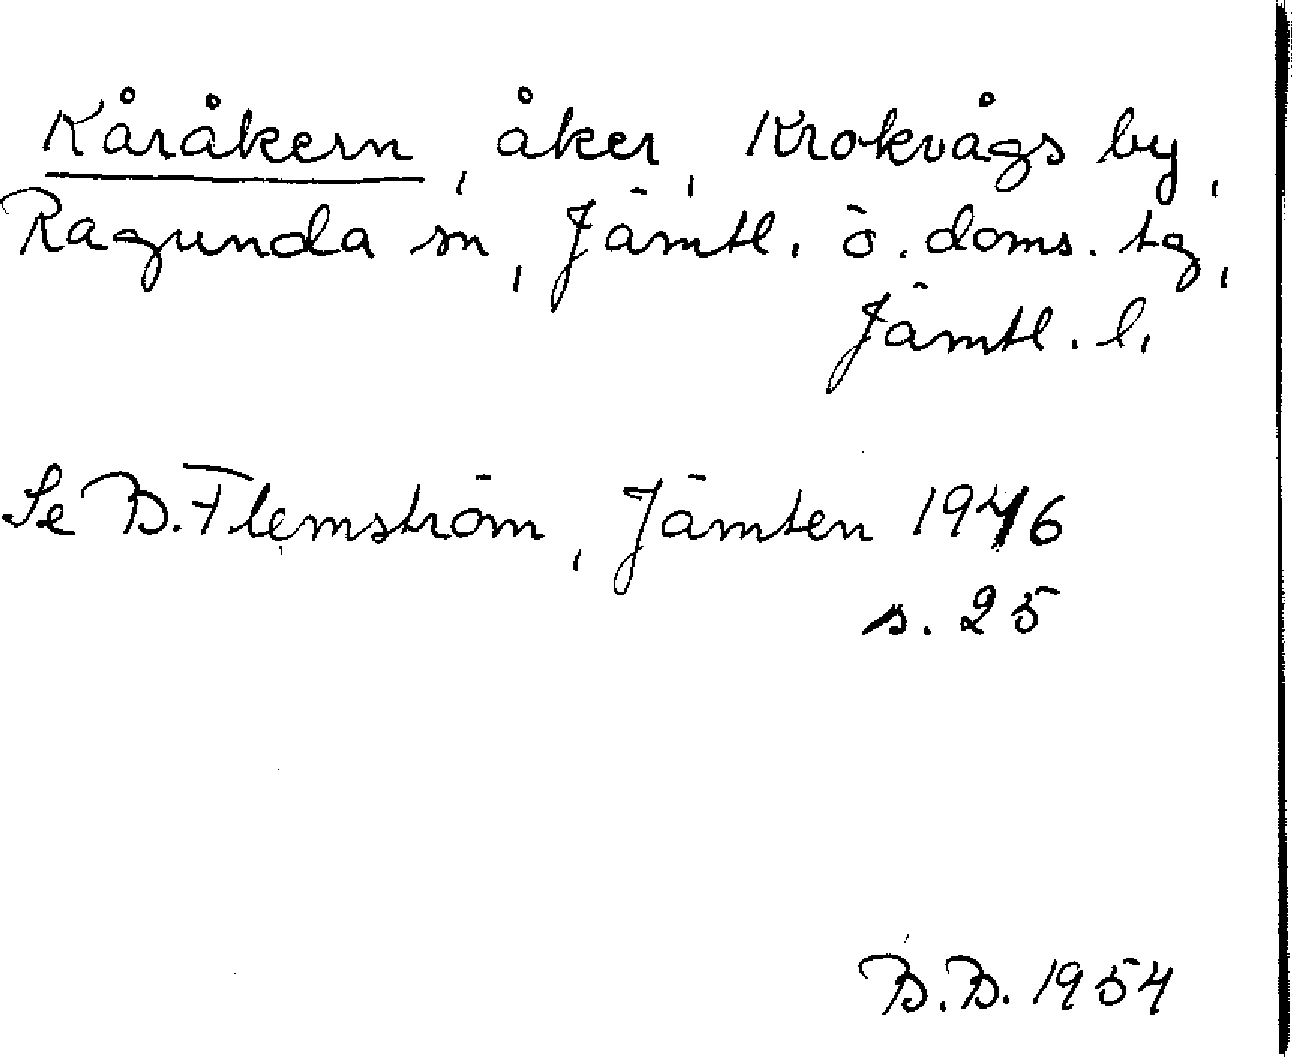 Kåråkern, åker, Krokvågs by,
Ragunda sn, Jämtl. ö. doms. tg,
Jämtl. l.
Se B. Flemström, Jämten 1946
s. 25
B.B. 1954